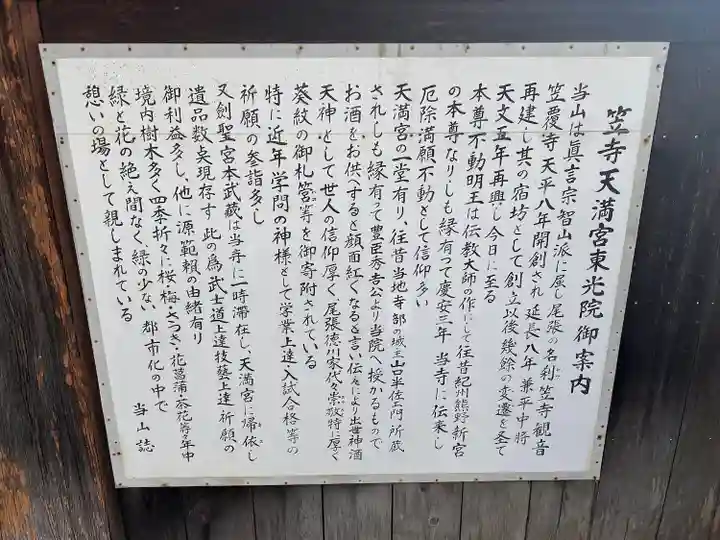 笠寺天満宮東光院御案内
当山は眞言宗智山派に属し尾張の名刹笠寺観音
笠覆寺天平八年開創され延長八年兼平中将
再建し其の宿坊として創立以後幾餘の変遷を圣て
天文五年再興し今日に至る
本尊不動明王は伝教大師の作にして往昔紀州熊野新宮
の本尊なりしも縁有って慶安三年当寺に伝来し
厄除満願不動として信仰多い
天満宮の一堂有り、往昔当地寺部の城主山口半左ヱ門所蔵
されしも縁有って豊臣秀吉公より当院へ授かるもので
お酒をお供へすると顔面紅くなると言い伝えにより出世神酒
天神として世人の信仰厚く尾張徳川家代々崇敬特に厚く
葵紋の御札筥等を御寄附されている
特に近年学問の神様として学業上達、入試合格等の
祈願の参詣多し
又剣聖宮本武蔵は当寺に一時滞在し、天満宮に帰依し
遺品数点現存す 此の為武士道上達技藝上達祈願の
御利益多し、他に源範頼の由緒有り
境内樹木多く四季折々に桜・梅・さつき・花菖蒲・茶花等々年中
緑と花の絶え間なく、緑の少ない都市化の中で
憩いの場として親しまれている
当山誌